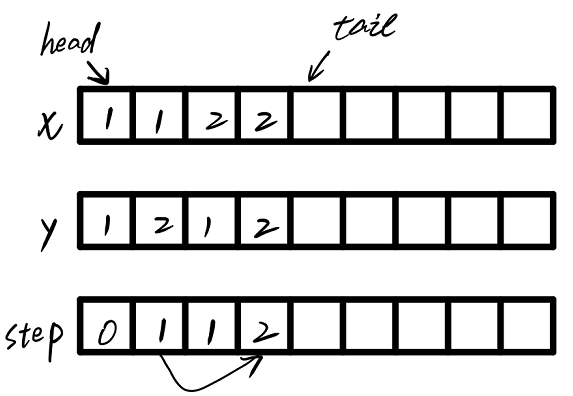 head tail
x 1 1 2 2
y 1 2 1 2
step 0 1 1 2